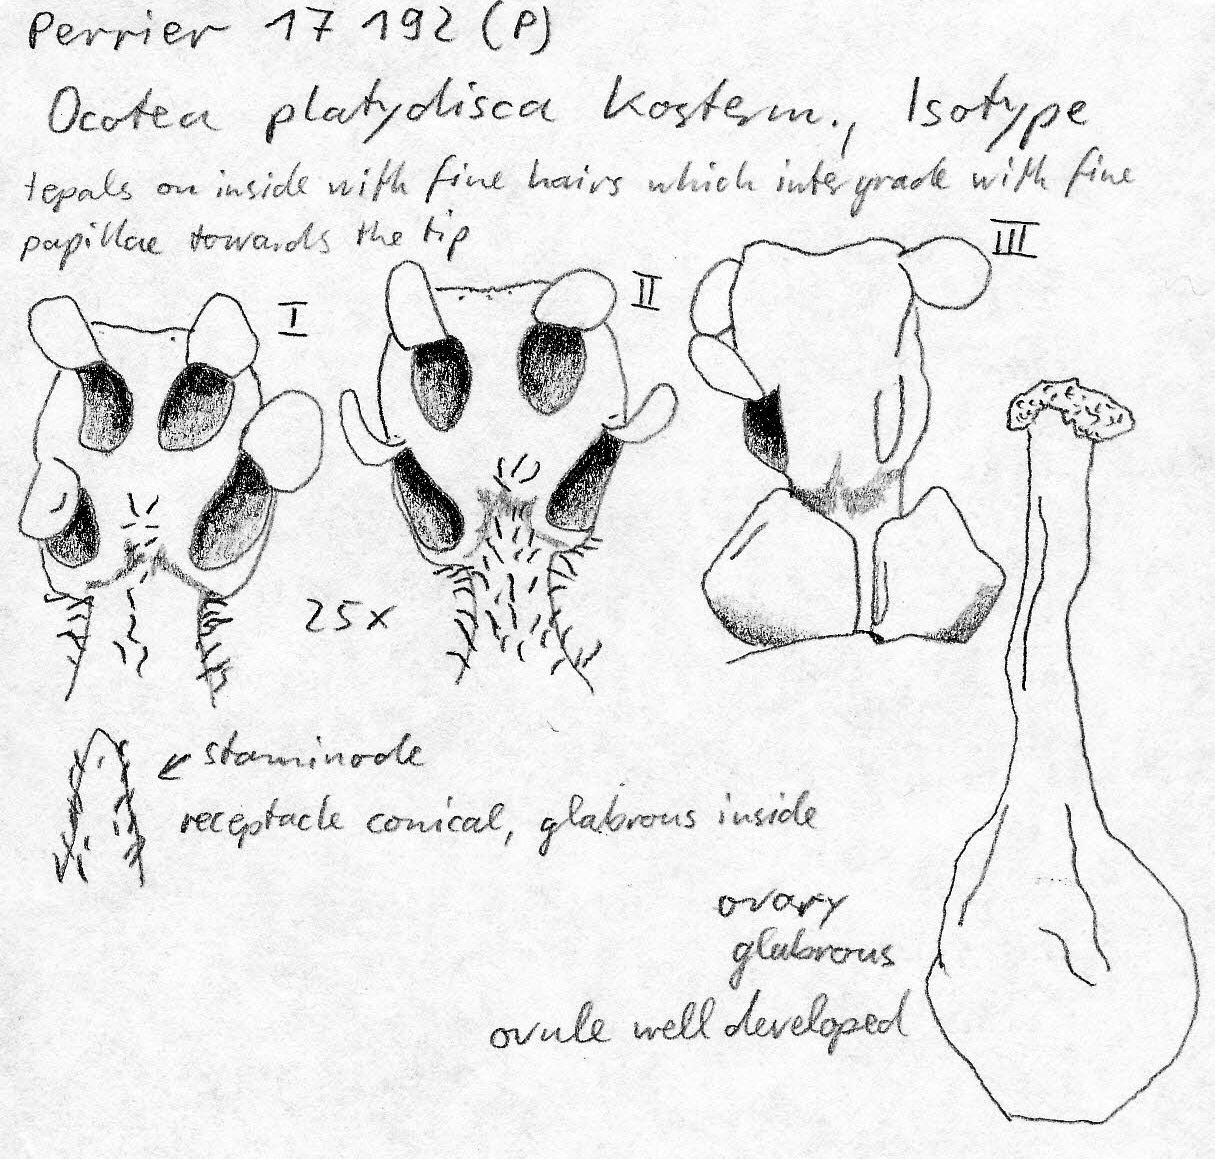 Perrier 17 192 (P)
Ocotea platydisca Kosterm., Isotype
tepals on inside with fine hairs which intergrade with fine
papillae towards the tip
I
II
III
25x
staminode
receptacle conical, glabrous inside
ovary
glabrous
ovule well developed